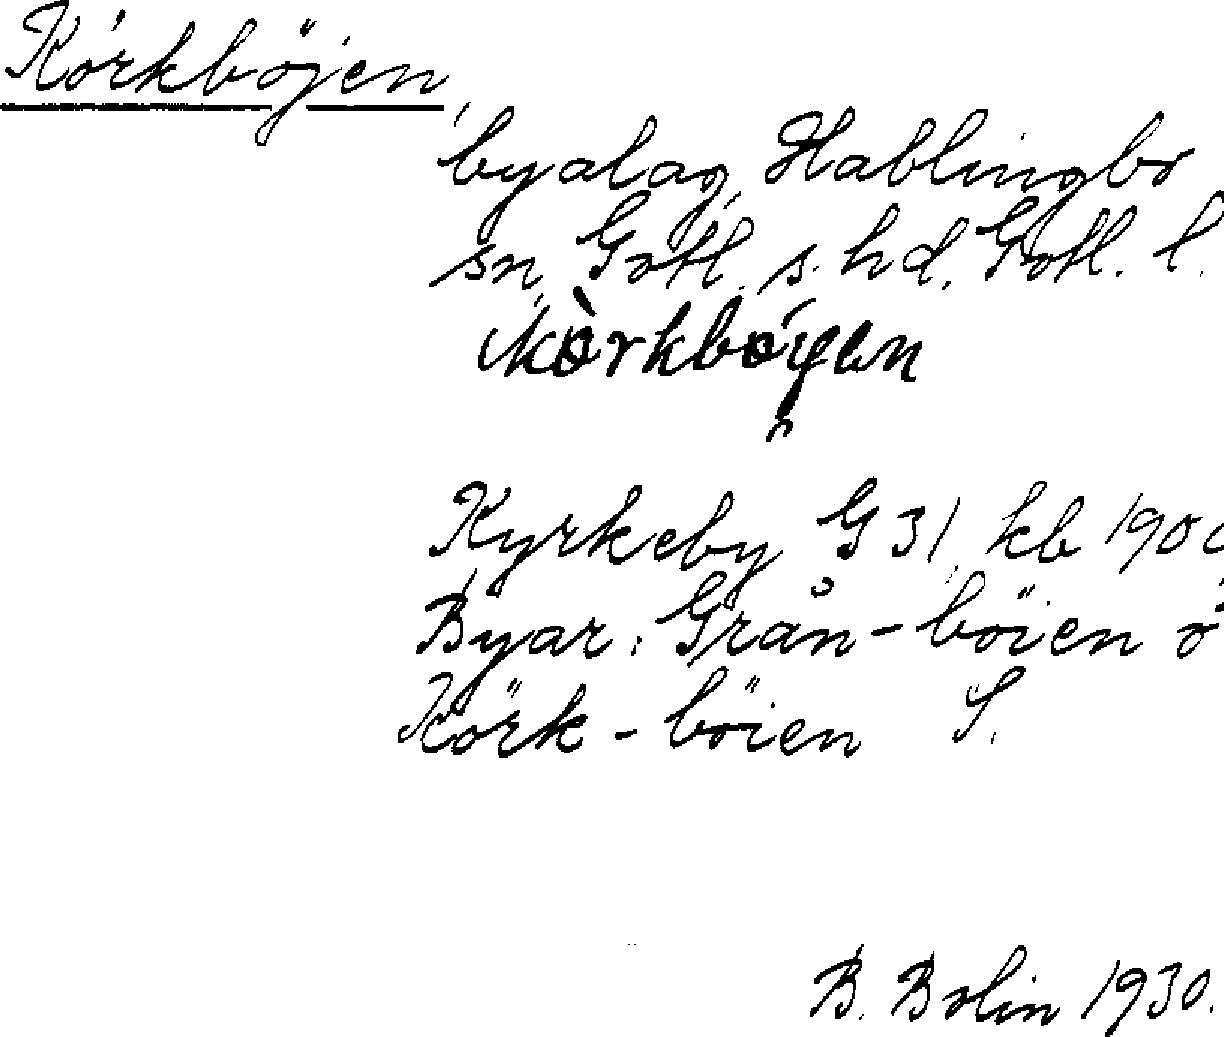 Körkböjen,
byalag, Hablingbo
sn, Gotl. s. hd, Gotl. l.
Kyrkeby G 31, kb 190
Byar: Grån-böien o
Körk-böien S.
B. Bolin 1930.